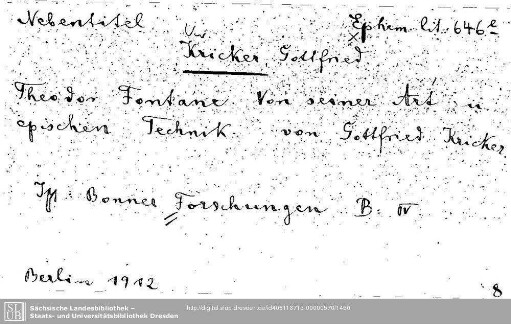 Nebentitel
Ephem. lit. 646
Kricker, Gottfried
Theodor Fontane Von seiner Art u
epischen Technik von Gottfried Kricker
Bonner Forschungen B: IV
Berlin 1912
8
SLUB
Sächsische Landesbibliothek –
Staats- und Universitätsbibliothek Dresden